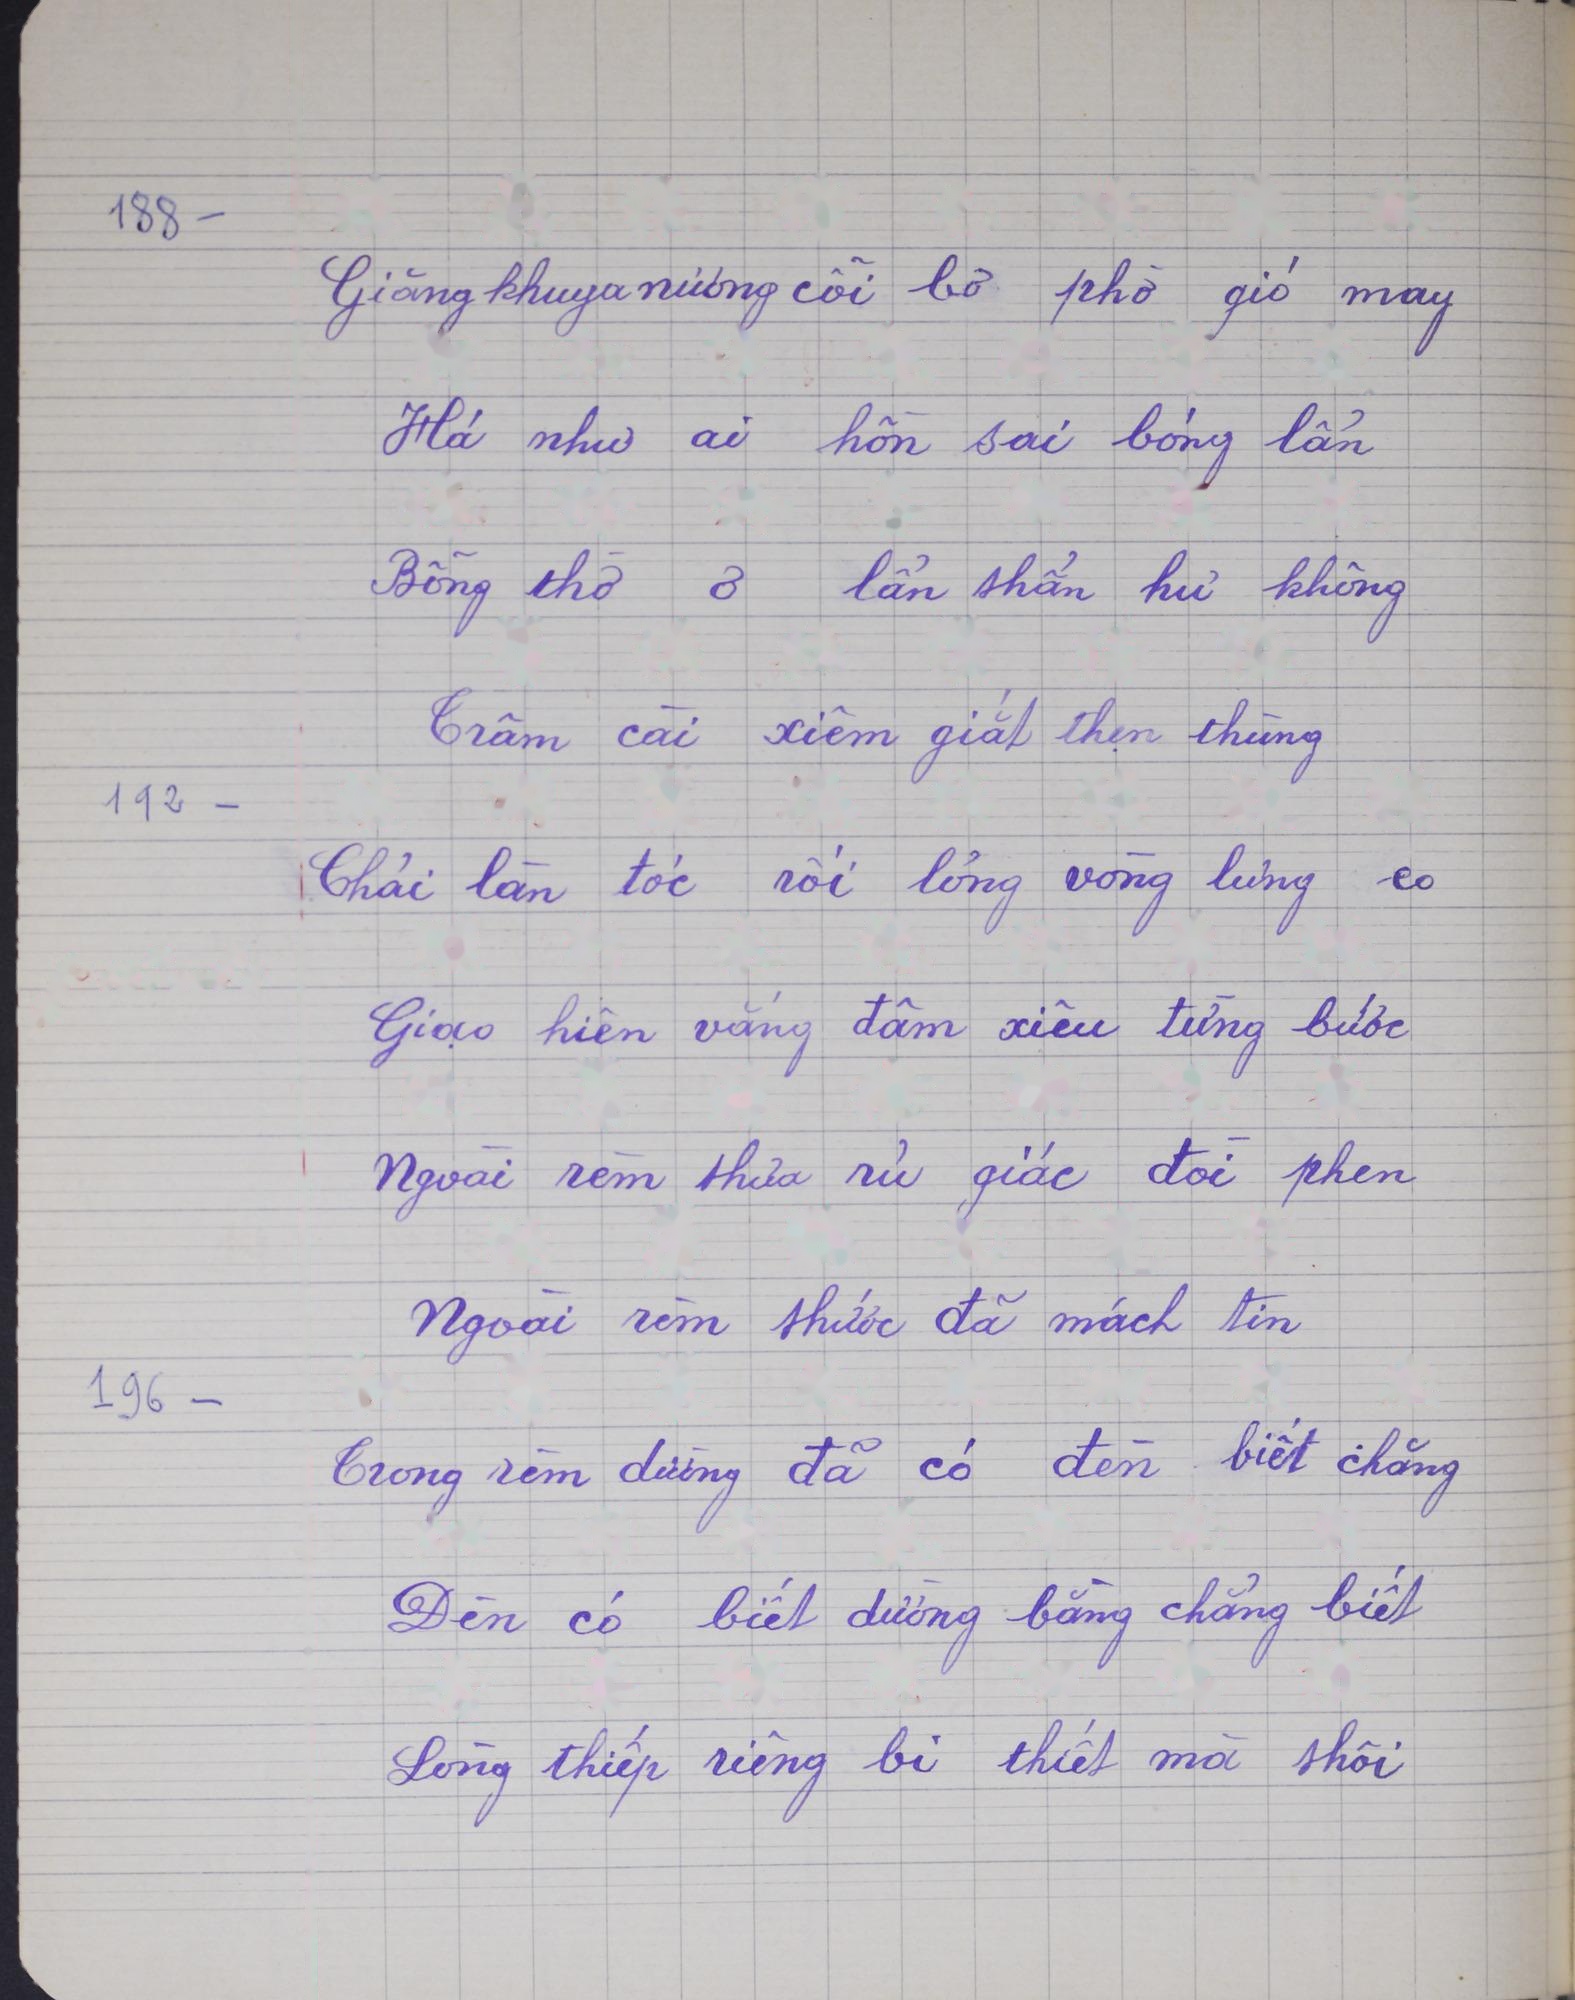 188 -
Giăng khuya nương cõi bơ phờ gió may
Há như ai hồn sai bóng lẩn
Bỗng thờ ơ lẩn thẩn hư không
Trâm cài xiêm giắt thẹn thùng
192 -
Chải làn tóc rối lỏng vòng lưng eo
Giạo hiên vắng đâm xiêu từng bước
Ngoài rèm thưa rủ giác đòi phen
Ngoài rèm thước đã mách tin
196 -
Trong rèm dường đã có đèn biết chăng
Đèn có biết dường bằng chẳng biết
Lòng thiếp riêng bi thiết mà thôi